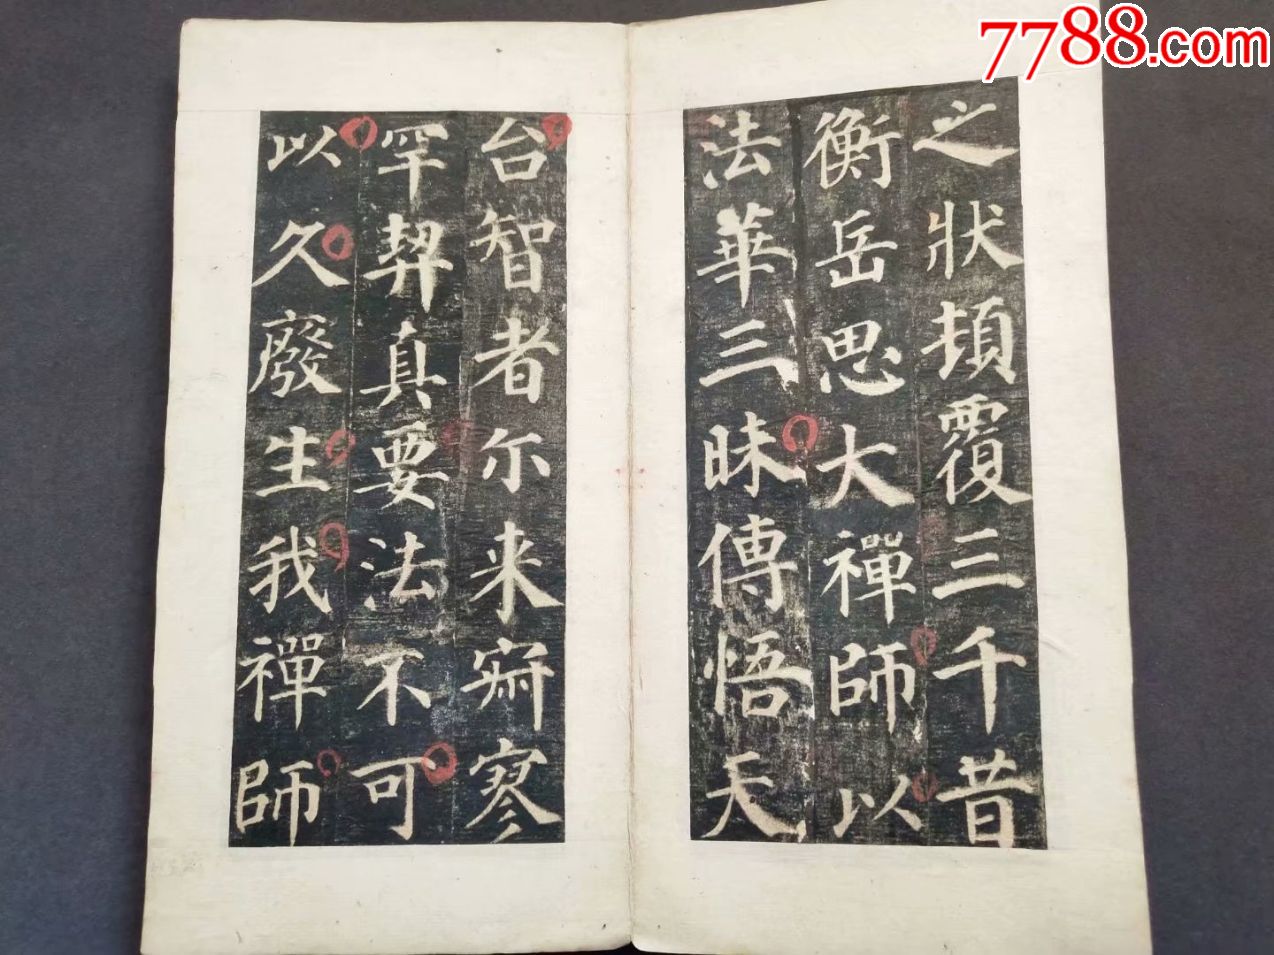 7788.com
之状頓覆三千昔
衡岳思大禪師以
法華三昧傳悟天
台智者尔来寂寥
罕契真要法不可
以久廢生我禪師